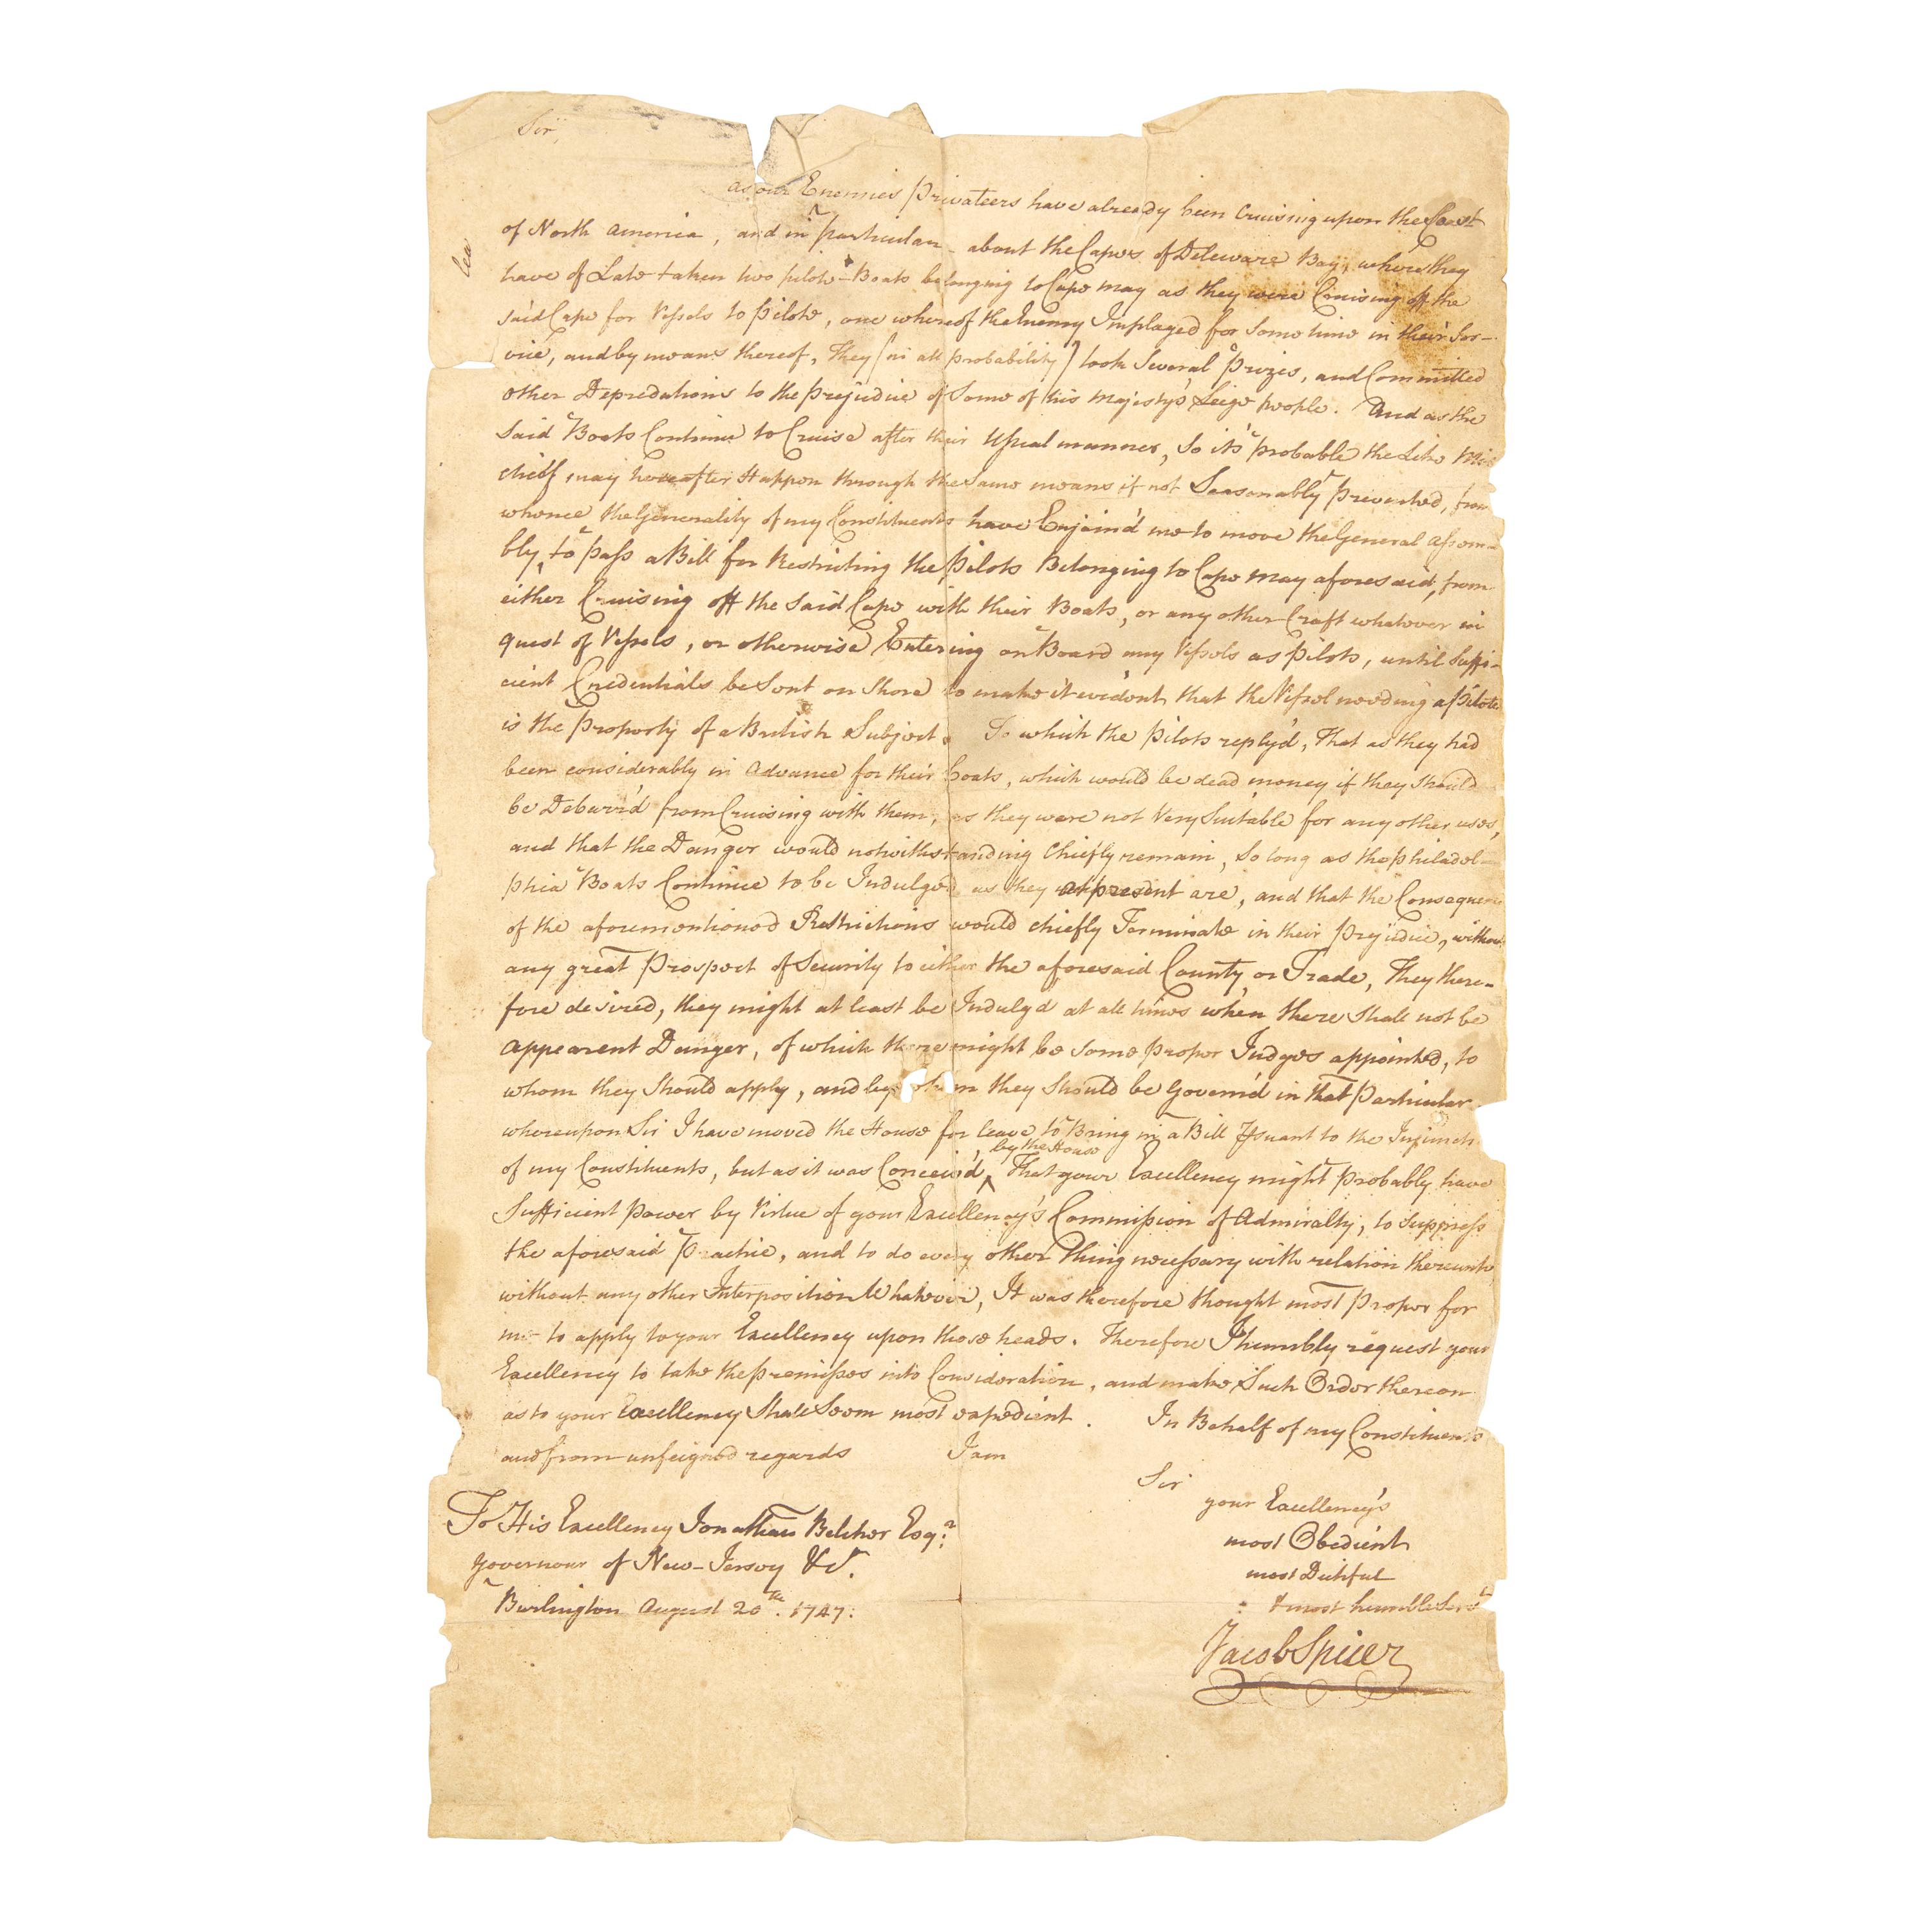 Sir,
as our Enemies Privateers have already been Cruising upon the Coast
of North America, and in particular about the Capes of Deleware Bay, where they
have of Late taken two pilote-Boats belonging to Cape may as they were Cruising off the
said Cape for Vessels to pilote, one whereof the Enemy Imployed for some time in their Ser-
vice, and by means thereof, They (in all probability) took Several Prizes, and Committed
other Depredations to the prejudice of Some of his Majesty's Leige people. And as the
said Boats Continue to Cruise after their Usual manner, So it's probable the Like Mis
chief may hereafter Happen through the Same means if not Seasonably prevented, from
whence the Generality of my Constituents have Enjoin'd me to move the General assem-
bly, to pass a Bill for Restricting the Pilots Belonging to Cape May aforesaid, from
either Cruising off the said Cape with their Boats, or any other Craft whatever in
quest of Vessels, or otherwise Entering on Board any Vessels as pilots, until Suffi-
cient Credentials be Sent on Shore to make it evident that the Vessel needing a pilote
is the property of a British Subject. To which the pilots reply'd, That as they had
been considerably in advance for their boats, which would be dead money if they should
be Debarr'd from Cruising with them, as they were not Very Suitable for any other uses,
and that the Danger would notwithstanding Chiefly remain, So long as the philadel-
phia Boats Continue to be Indulged as they at present are, and that the Consequence
of the aforementioned Restrictions would chiefly Terminate in their prejudice, without
any great Prospect of Security to either the aforesaid County, or Trade, They there-
fore desired, they might at least be Indulg'd at all times when there Shall not be
appearent Danger, of which there might be some proper Judges appointed, to
whom they Should apply, and by whom they Should be Govern'd in that Particular
whereupon Sir I have moved the House for leave to Bring in a Bill Psuant to the Injunct
by the House
of my Constituents, but as it was Conceiv'd, That your Excellency might probably have
Sufficient power by Virtue of your Excellency's Commission of Admiralty, to Suppress
the aforesaid Practice, and to do every other Thing necessary with relation thereunto
without any other Interposition Whatever, It was therefore thought most proper for
me to apply to your Excellency upon those heads. Therefore I humbly request your
Excellency to take the premisses into Consideration, and make Such Order thereon
as to your Excellency Shall Seem most expedient. In Behalf of my Constituents
and from unfeigned regards I am
Sir
your Excellency's
most Obedient
most Dutiful
& most humble Servt
Jacob Spicer
To His Excellency Jonathan Belcher Esqr.
Governour of New-Jersey &c.
Burlington August 20th. 1747: